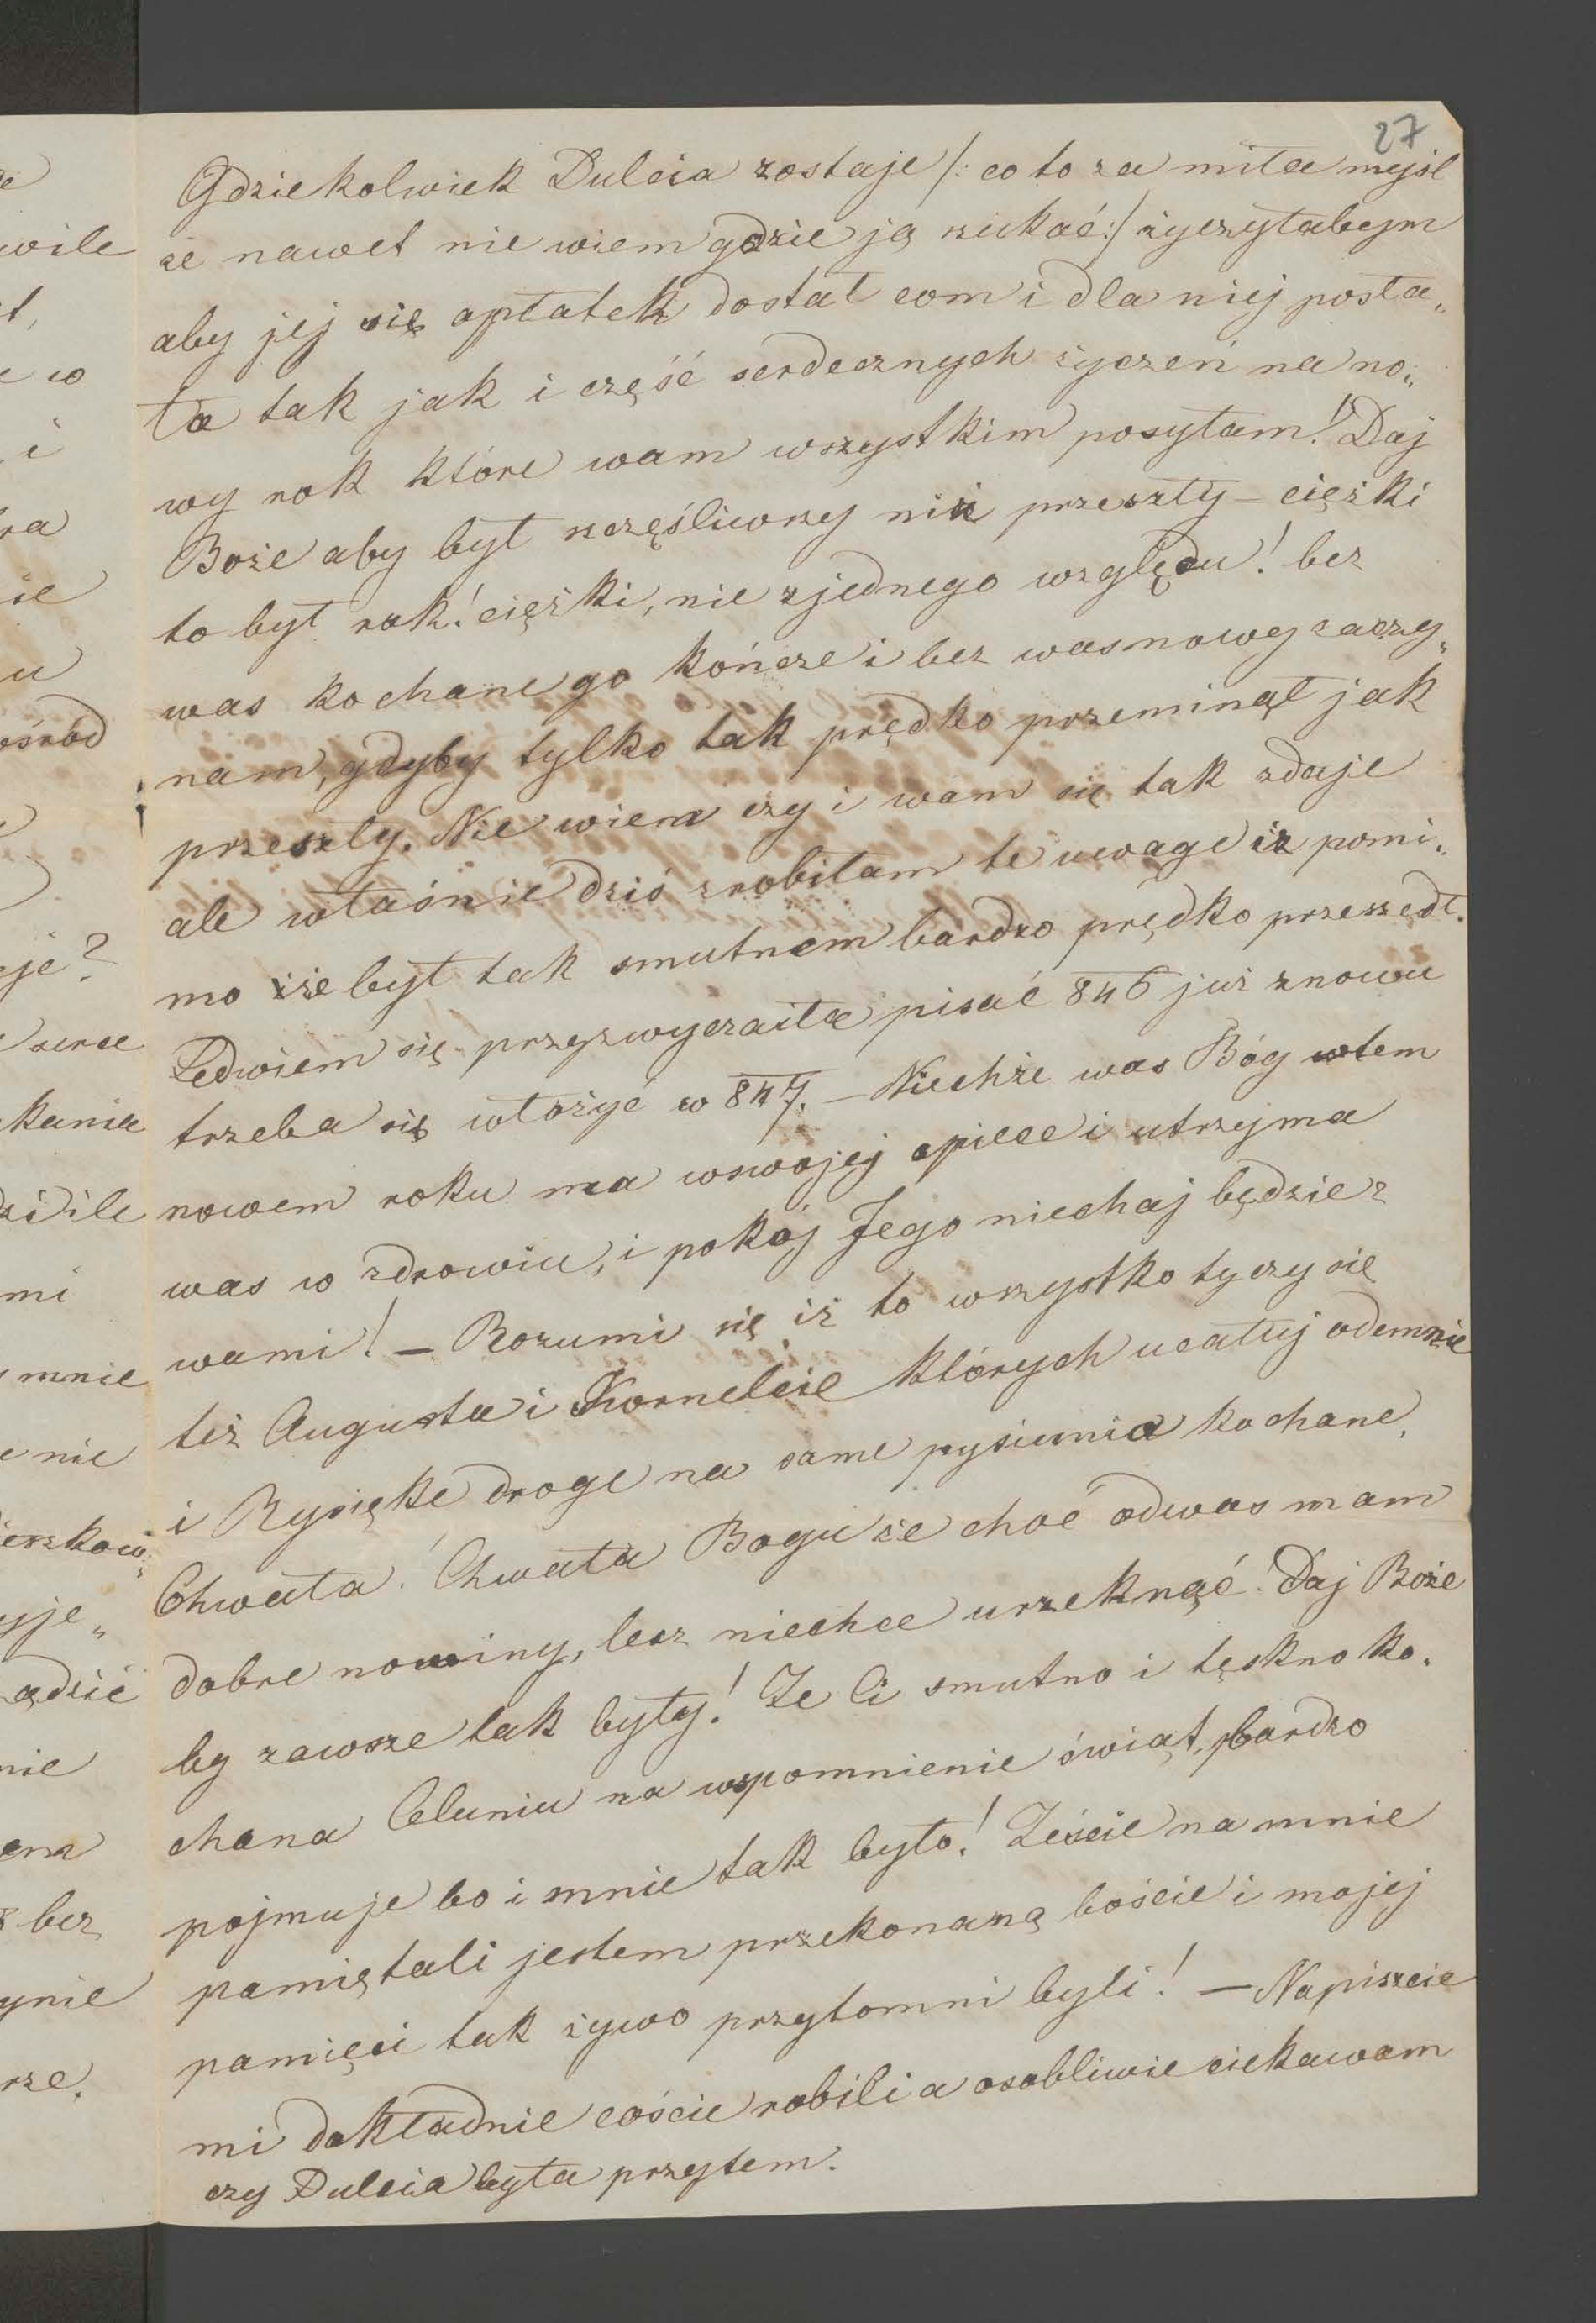 27
Gdziekolwiek Dulcia zostaje /: co to za miła myśl
że nawet nie wiem gdzie ją szukać :/ życzyłabym
aby jej się opłatek dostał com i dla niej posła„
ła tak jak i część serdecznych życzeń na no„
wy rok które wam wszystkim posyłam! Daj
Boże aby był szczęśliwszy niż przeszły – ciężki
to był rok! ciężki, nie zjednego względu! bez
was kochane go kończe i bez was nowy zaczy„
nam, gdyby tylko tak prędko przeminął jak
przeszły. Nie wiem czy i wam się tak zdaje
ale właśnie dziś zrobiłam te uwage iż pomi„
mo iże był tak smutnem bardzo prędko przeszedł.
Ledwiem się przyzwyczaiła pisać 846 już znowu
trzeba się włożyć w 847. – Niechże was Bóg wtem
nowem roku ma wswojej opiece i utrzyma
was w zdrowiu, i pokój Jego niechaj będzie z
wami! – Rozumi się iż to wszystko tyczy się
też Augusta i Kornelcie których ucałuj odemnie
i Rysięke droge na same pysiunia kochane.
Chwała! Chwała Bogu że choć odwas mam
dobre nowiny, lecz niechce urzeknąć! Daj Boże
by zawsze tak były! Że Ci smutno i tęskno ko„
chana Celuniu na wspomnienie świąt, bardzo
pojmuje bo i mnie tak było! Żeście na mnie
pamiętali jestem przekonaną boście i mojej
pamięci tak żywo przytomni byli! – Napiszcie
mi dokładnie coście robili a osobliwie ciekawam
czy Dulcia była przytem.